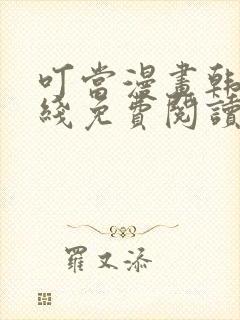 叮当漫畫韩
綫免費閱讀
羅又添